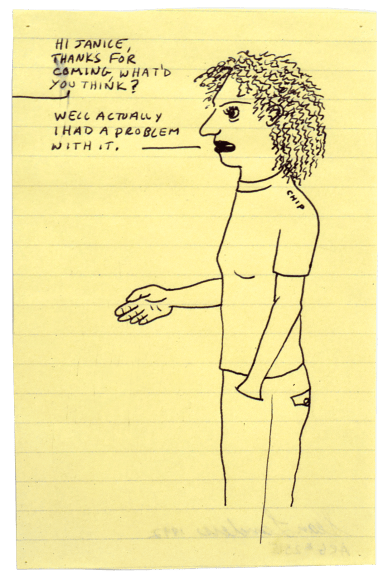 HI JANICE,
THANKS FOR
COMING, WHAT'D
YOU THINK?
WELL ACTUALLY
I HAD A PROBLEM
WITH IT.
CHIP